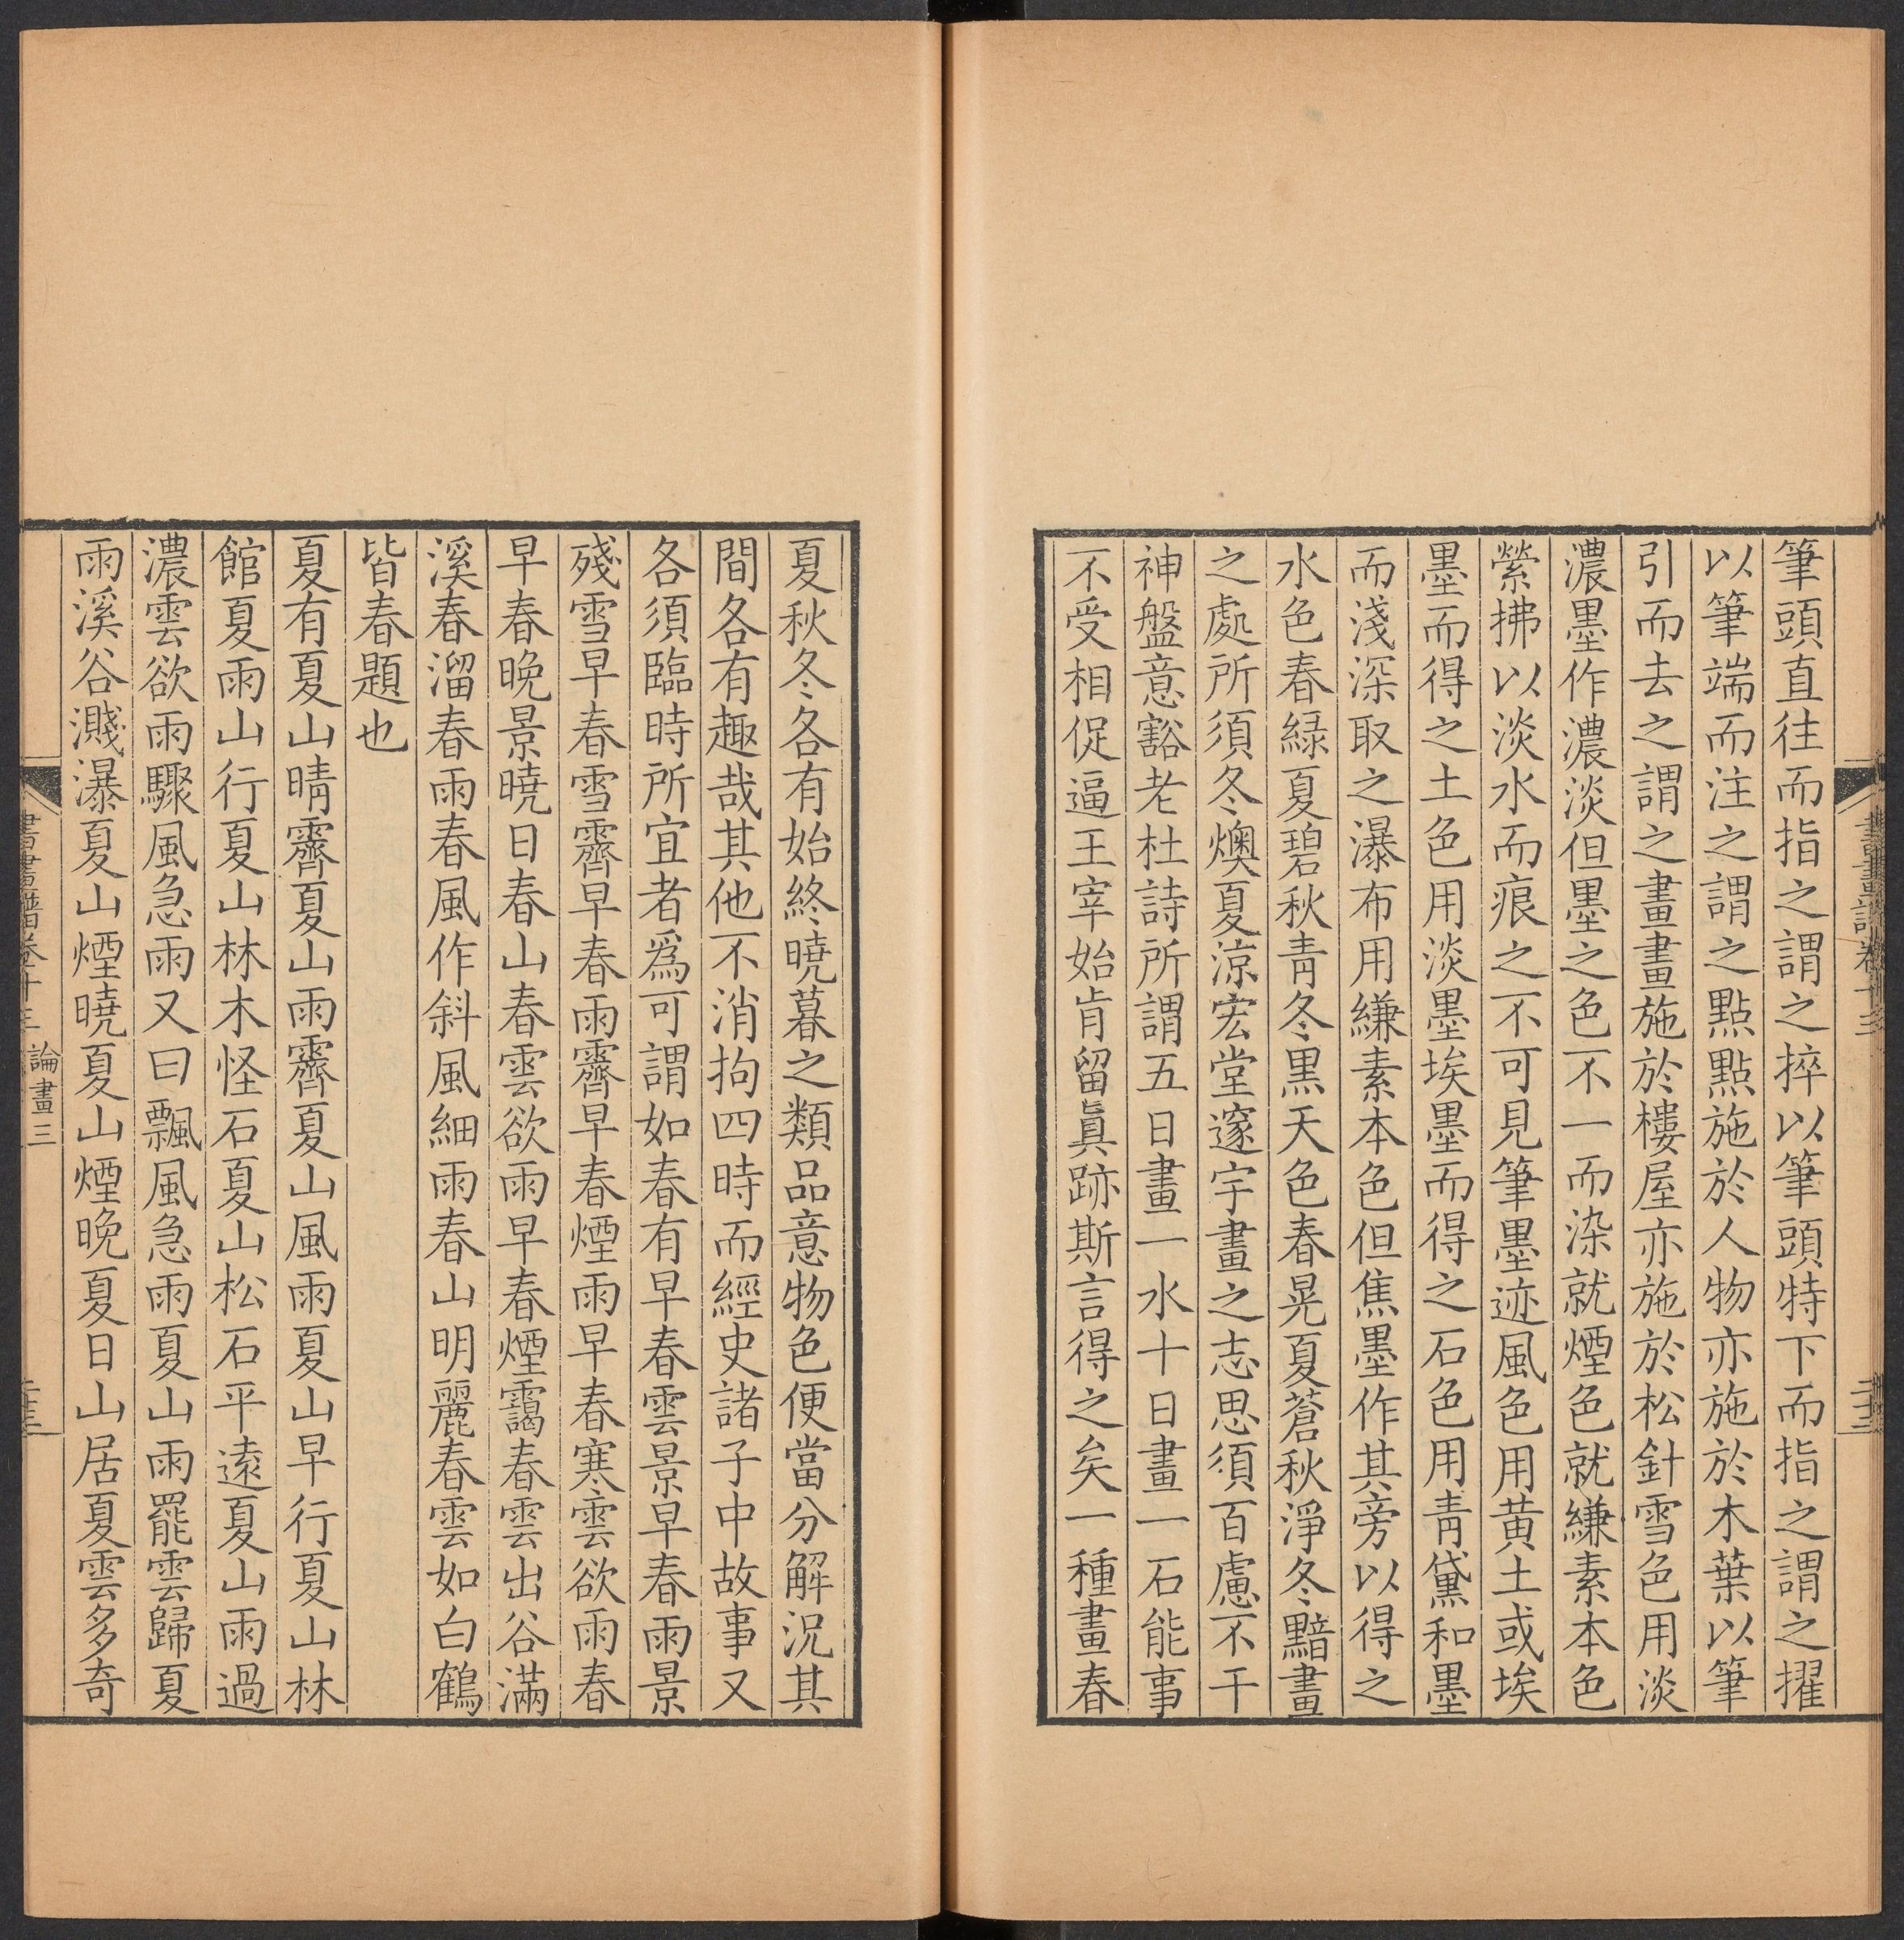 筆頭直往而指之謂之捽以筆頭特下而指之謂之擢
以筆端而注之謂之點點施於人物亦施於木葉以筆
引而去之謂之畫畫施於樓屋亦施於松針雪色用淡
濃墨作濃淡但墨之色不一而染就煙色就縑素本色
縈拂以淡水而痕之不可見筆墨迹風色用黃土或埃
墨而得之土色用淡墨埃墨而得之石色用青黛和墨
而淺深取之瀑布用縑素本色但焦墨作其旁以得之
水色春綠夏碧秋青冬黑天色春晃夏蒼秋淨冬黯畫
之處所須冬燠夏涼宏堂邃宇畫之志思須百慮不干
神盤意豁老杜詩所謂五日畫一水十日畫一石能事
不受相促逼王宰始肯留眞跡斯言得之矣一種畫春
夏秋冬各有始終曉暮之類品意物色便當分解況其
間各有趣哉其他不消拘四時而經史諸子中故事又
各須臨時所宜者爲可謂如春有早春雲景早春雨景
殘雪早春雪霽早春雨霽早春煙雨早春寒雲欲雨春
早春晚景曉日春山春雲欲雨早春煙靄春雲出谷滿
溪春溜春雨春風作斜風細雨春山明麗春雲如白鶴
皆春題也
夏有夏山晴霽夏山雨霽夏山風雨夏山早行夏山林
館夏雨山行夏山林木怪石夏山松石平遠夏山雨過
濃雲欲雨驟風急雨又曰飄風急雨夏山雨罷雲歸夏
雨溪谷濺瀑夏山煙曉夏山煙晚夏日山居夏雲多奇
論畫三